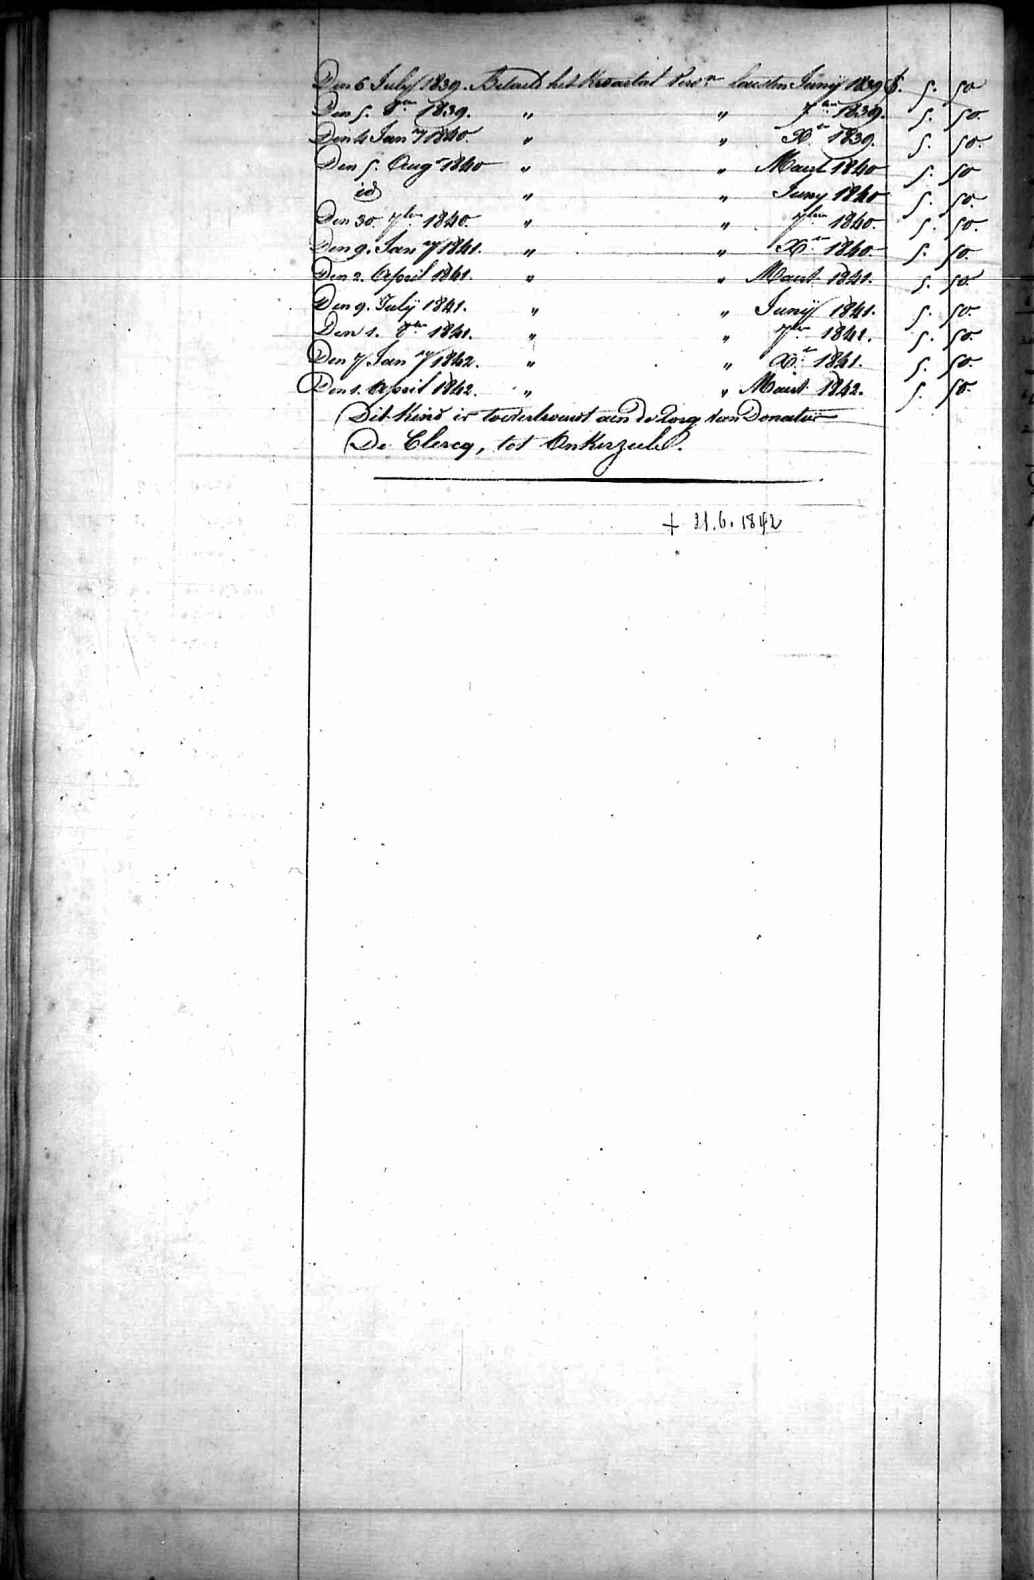 Den 6 July 1839. Betaeld het Kwartael laesten Junij 1839 f. 5. 50
Den 5. 8er 1839. " " 7er 1839. 5. 50.
Den 4 Jany 1840. " " Xr 1839. 5. 50.
Den 5. Augt 1840 " " Maert 1840 5. 50
id " " Juny 1840 5. 50.
Den 30. 7ber 1840. " " 7ber 1840. 5. 50.
Den 9. Jany 1841. " " Xr 1840. 5. 50.
Den 2. April 1841. " " Maert 1841. 5. 50.
Den 9. Julij 1841. " " Junij 1841. 5. 50.
Den 1. 8er 1841. " " 7er 1841. 5. 50.
Den 7 Jany 1842. " " Xr 1841. 5. 50.
Den 1. April 1842. " " Maert 1842. 5. 50.
Dit Kind is toevertrouwt aen de Zorg van Donatus
De Clercq, tot Onkerzeele.
+ 21.6.1842